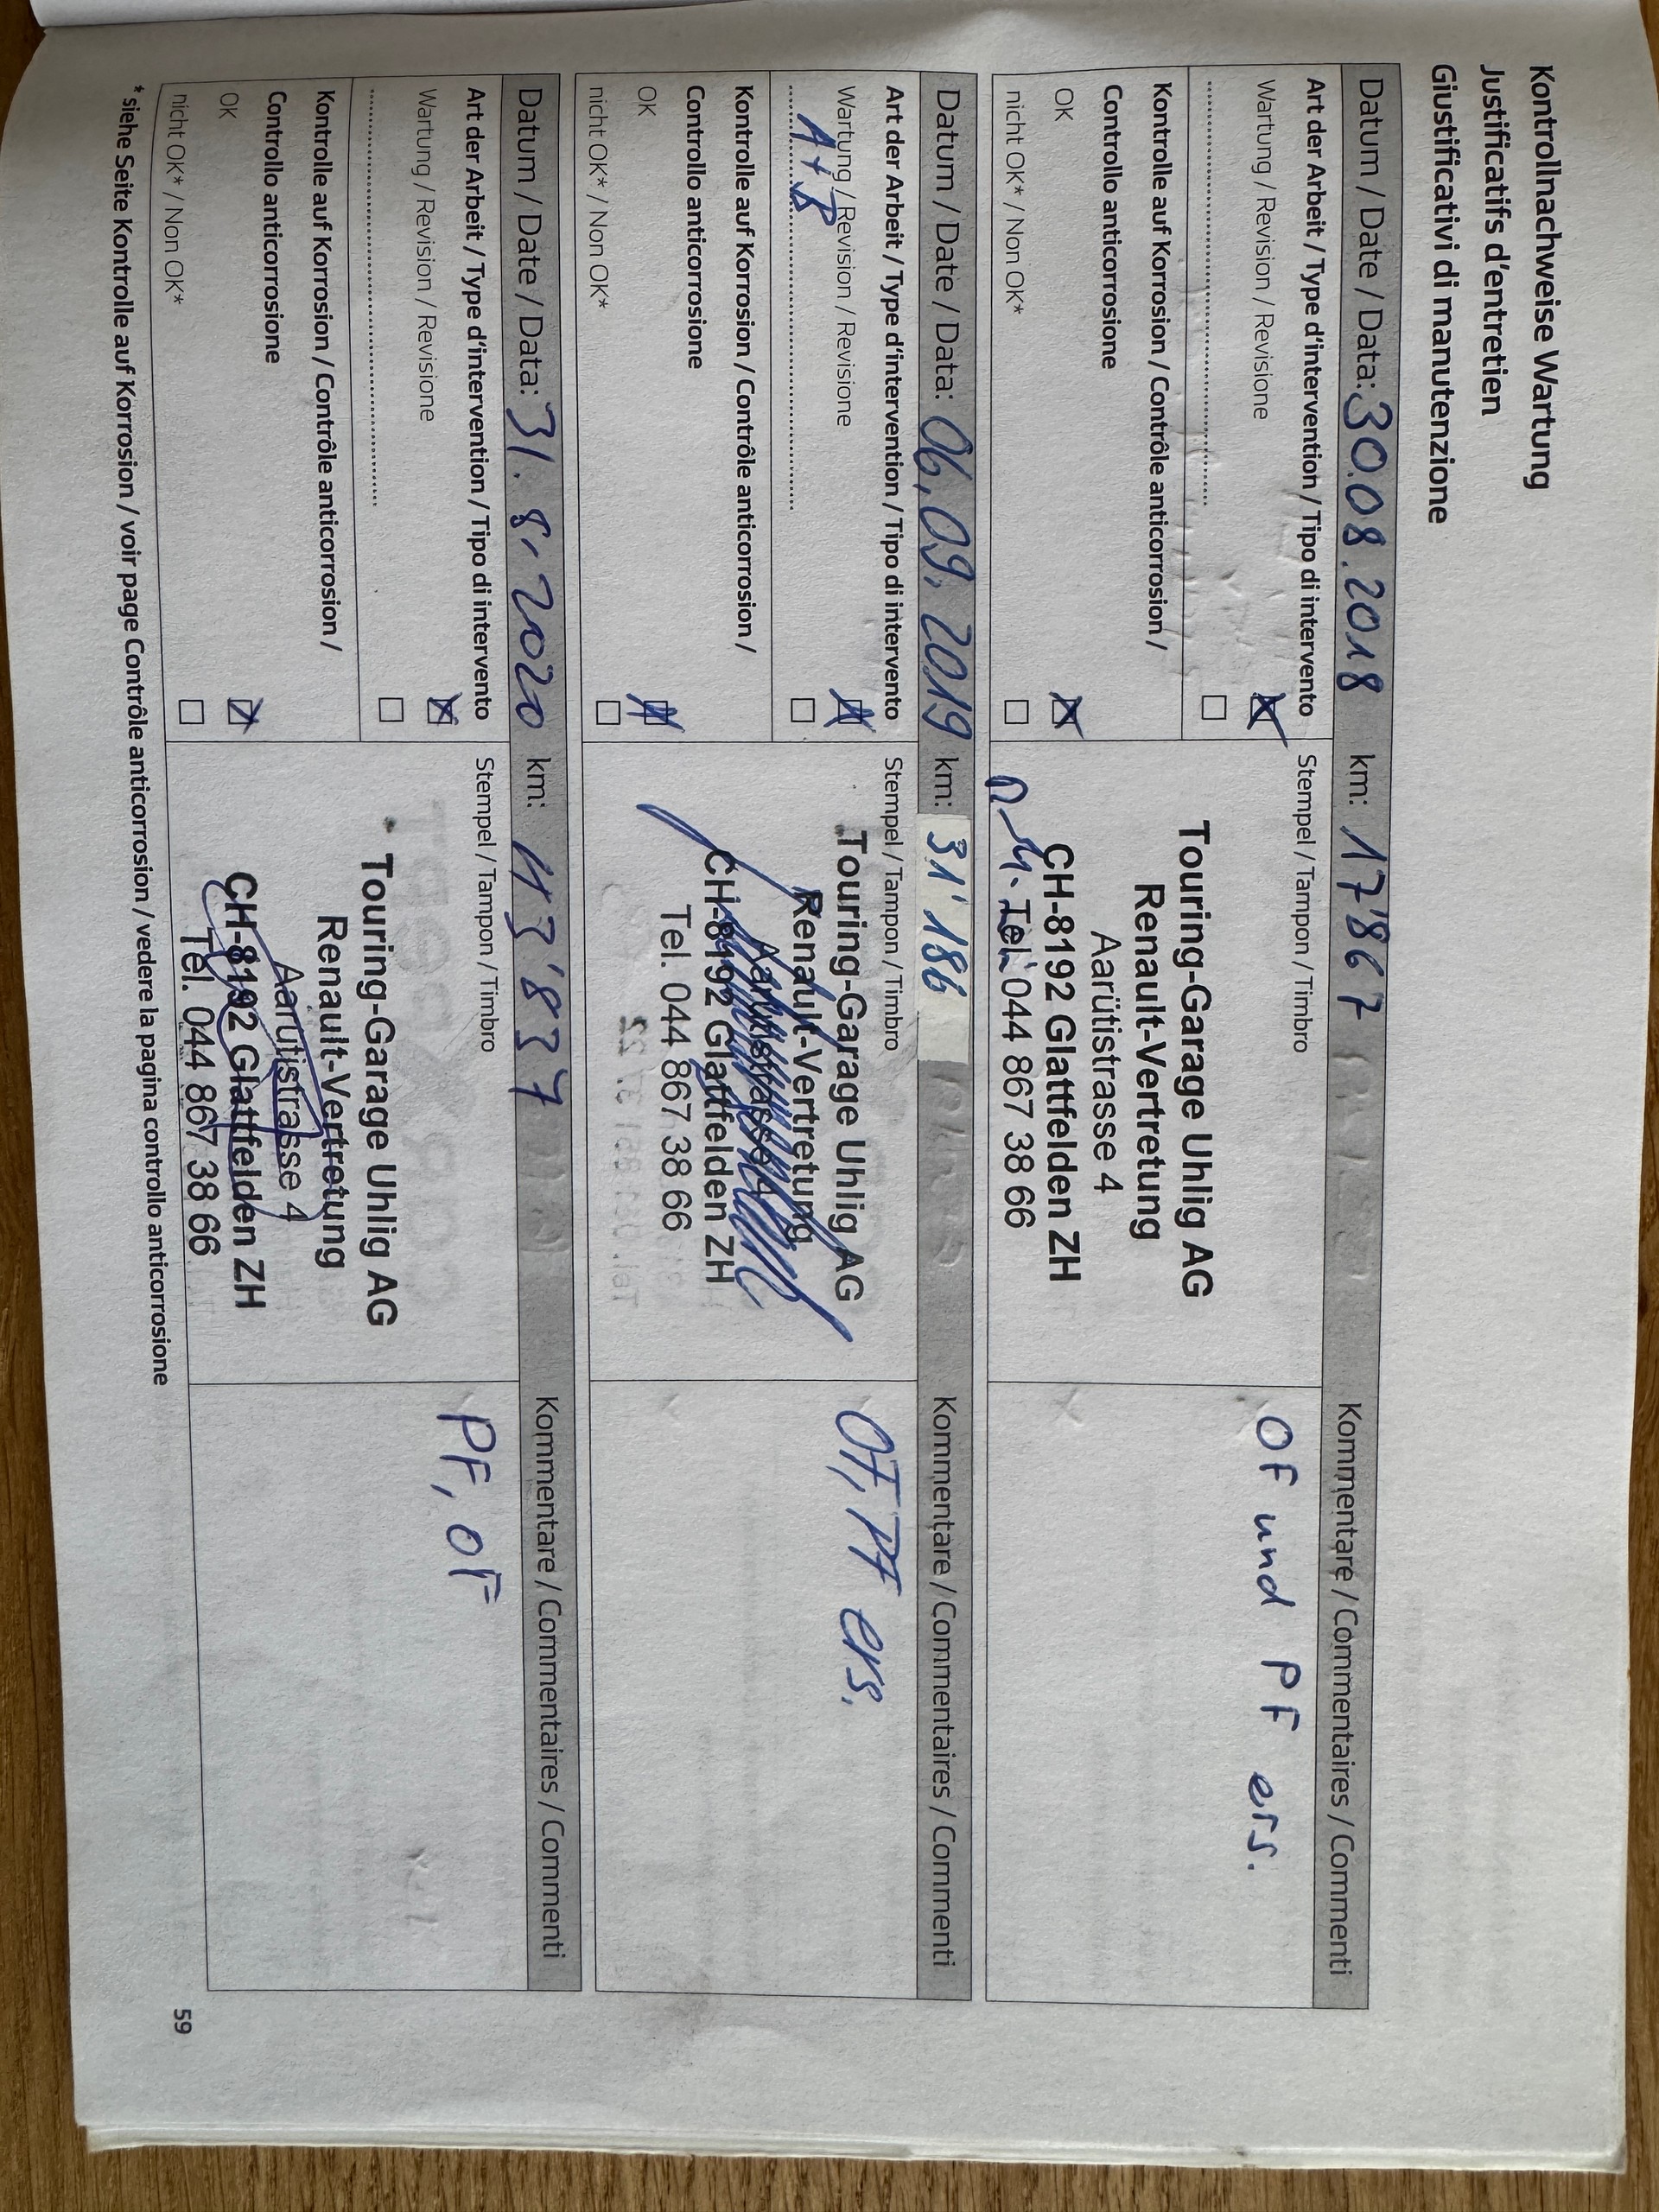 Kontrollnachweise Wartung
Justificatifs d'entretien
Giustificativi di manutenzione
Datum / Date / Data: 30.08.2018 km: 17'867 Kommentare / Commentaires / Commenti
Art der Arbeit / Type d'intervention / Tipo di intervento
Wartung / Revision / Revisione
Kontrolle auf Korrosion / Contrôle anticorrosion /
Controllo anticorrosione
OK
nicht OK* / Non OK*
Stempel / Tampon / Timbro
Touring-Garage Uhlig AG
Renault-Vertretung
Aarütistrasse 4
CH-8192 Glattfelden ZH
Tel. 044 867 38 66
OF und PF ers.
Datum / Date / Data: 06.09.2019 km: 31'186 Kommentare / Commentaires / Commenti
Art der Arbeit / Type d'intervention / Tipo di intervento
Wartung / Revision / Revisione
A+B
Kontrolle auf Korrosion / Contrôle anticorrosion /
Controllo anticorrosione
OK
nicht OK* / Non OK*
Stempel / Tampon / Timbro
Touring-Garage Uhlig AG
Renault-Vertretung
Aarütistrasse 4
CH-8192 Glattfelden ZH
Tel. 044 867 38 66
OF, PF ers.
Datum / Date / Data: 31.8.2020 km: 43'837 Kommentare / Commentaires / Commenti
Art der Arbeit / Type d'intervention / Tipo di intervento
Wartung / Revision / Revisione
Kontrolle auf Korrosion / Contrôle anticorrosion /
Controllo anticorrosione
OK
nicht OK* / Non OK*
Stempel / Tampon / Timbro
Touring-Garage Uhlig AG
Renault-Vertretung
Aarütistrasse 4
CH-8192 Glattfelden ZH
Tel. 044 867 38 66
PF, OF
* siehe Seite Kontrolle auf Korrosion / voir page Contrôle anticorrosion / vedere la pagina controllo anticorrosione
59